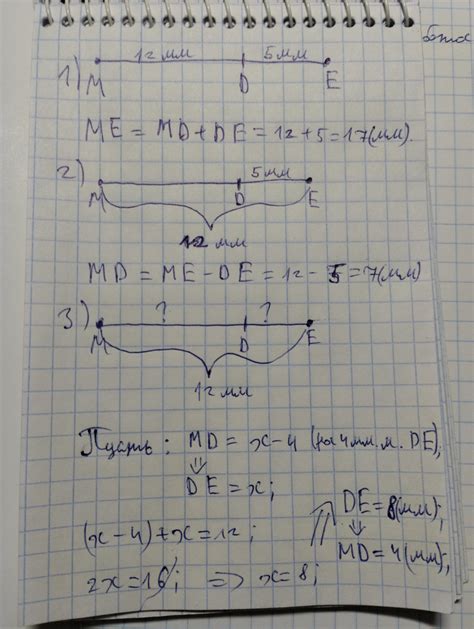 1) 12 мм 5 мм
M D E
ME = MD + DE = 12 + 5 = 17 (мм).
2) 5 мм
M D E
12 мм
MD = ME - DE = 12 - 5 = 7 (мм)
3) ? ?
M D E
12 мм
Пусть: MD = x - 4 (на 4 мм. м. DE);
⇓
DE = x;
(x - 4) + x = 12;
2x = 16; => x = 8;
⇑ DE = 8 (мм);
⇓
MD = 4 (мм);